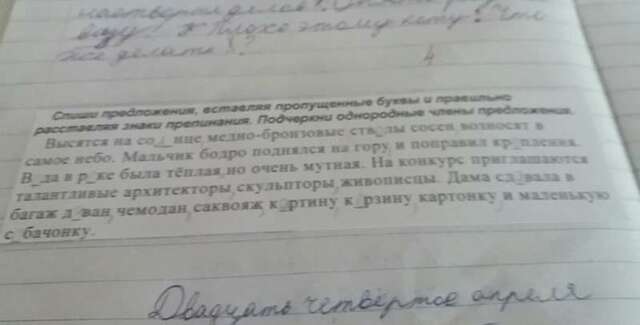 этому коту! Что
делать!?
4
Спиши предложения, вставляя пропущенные буквы и правильно
расставляя знаки препинания. Подчеркни однородные члены предложения.
Высятся на со_нце медно-бронзовые ств_лы сосен возносят в
самое небо. Мальчик бодро поднялся на гору и поправил кр_пления.
В_да в р_ке была тёплая но очень мутная. На конкурс приглашаются
талантливые архитекторы скульпторы живописцы. Дама сд_вала в
багаж д_ван чемодан саквояж к_ртину к_рзину картонку и маленькую
с_бачонку.
Двадцать четвёртое апреля